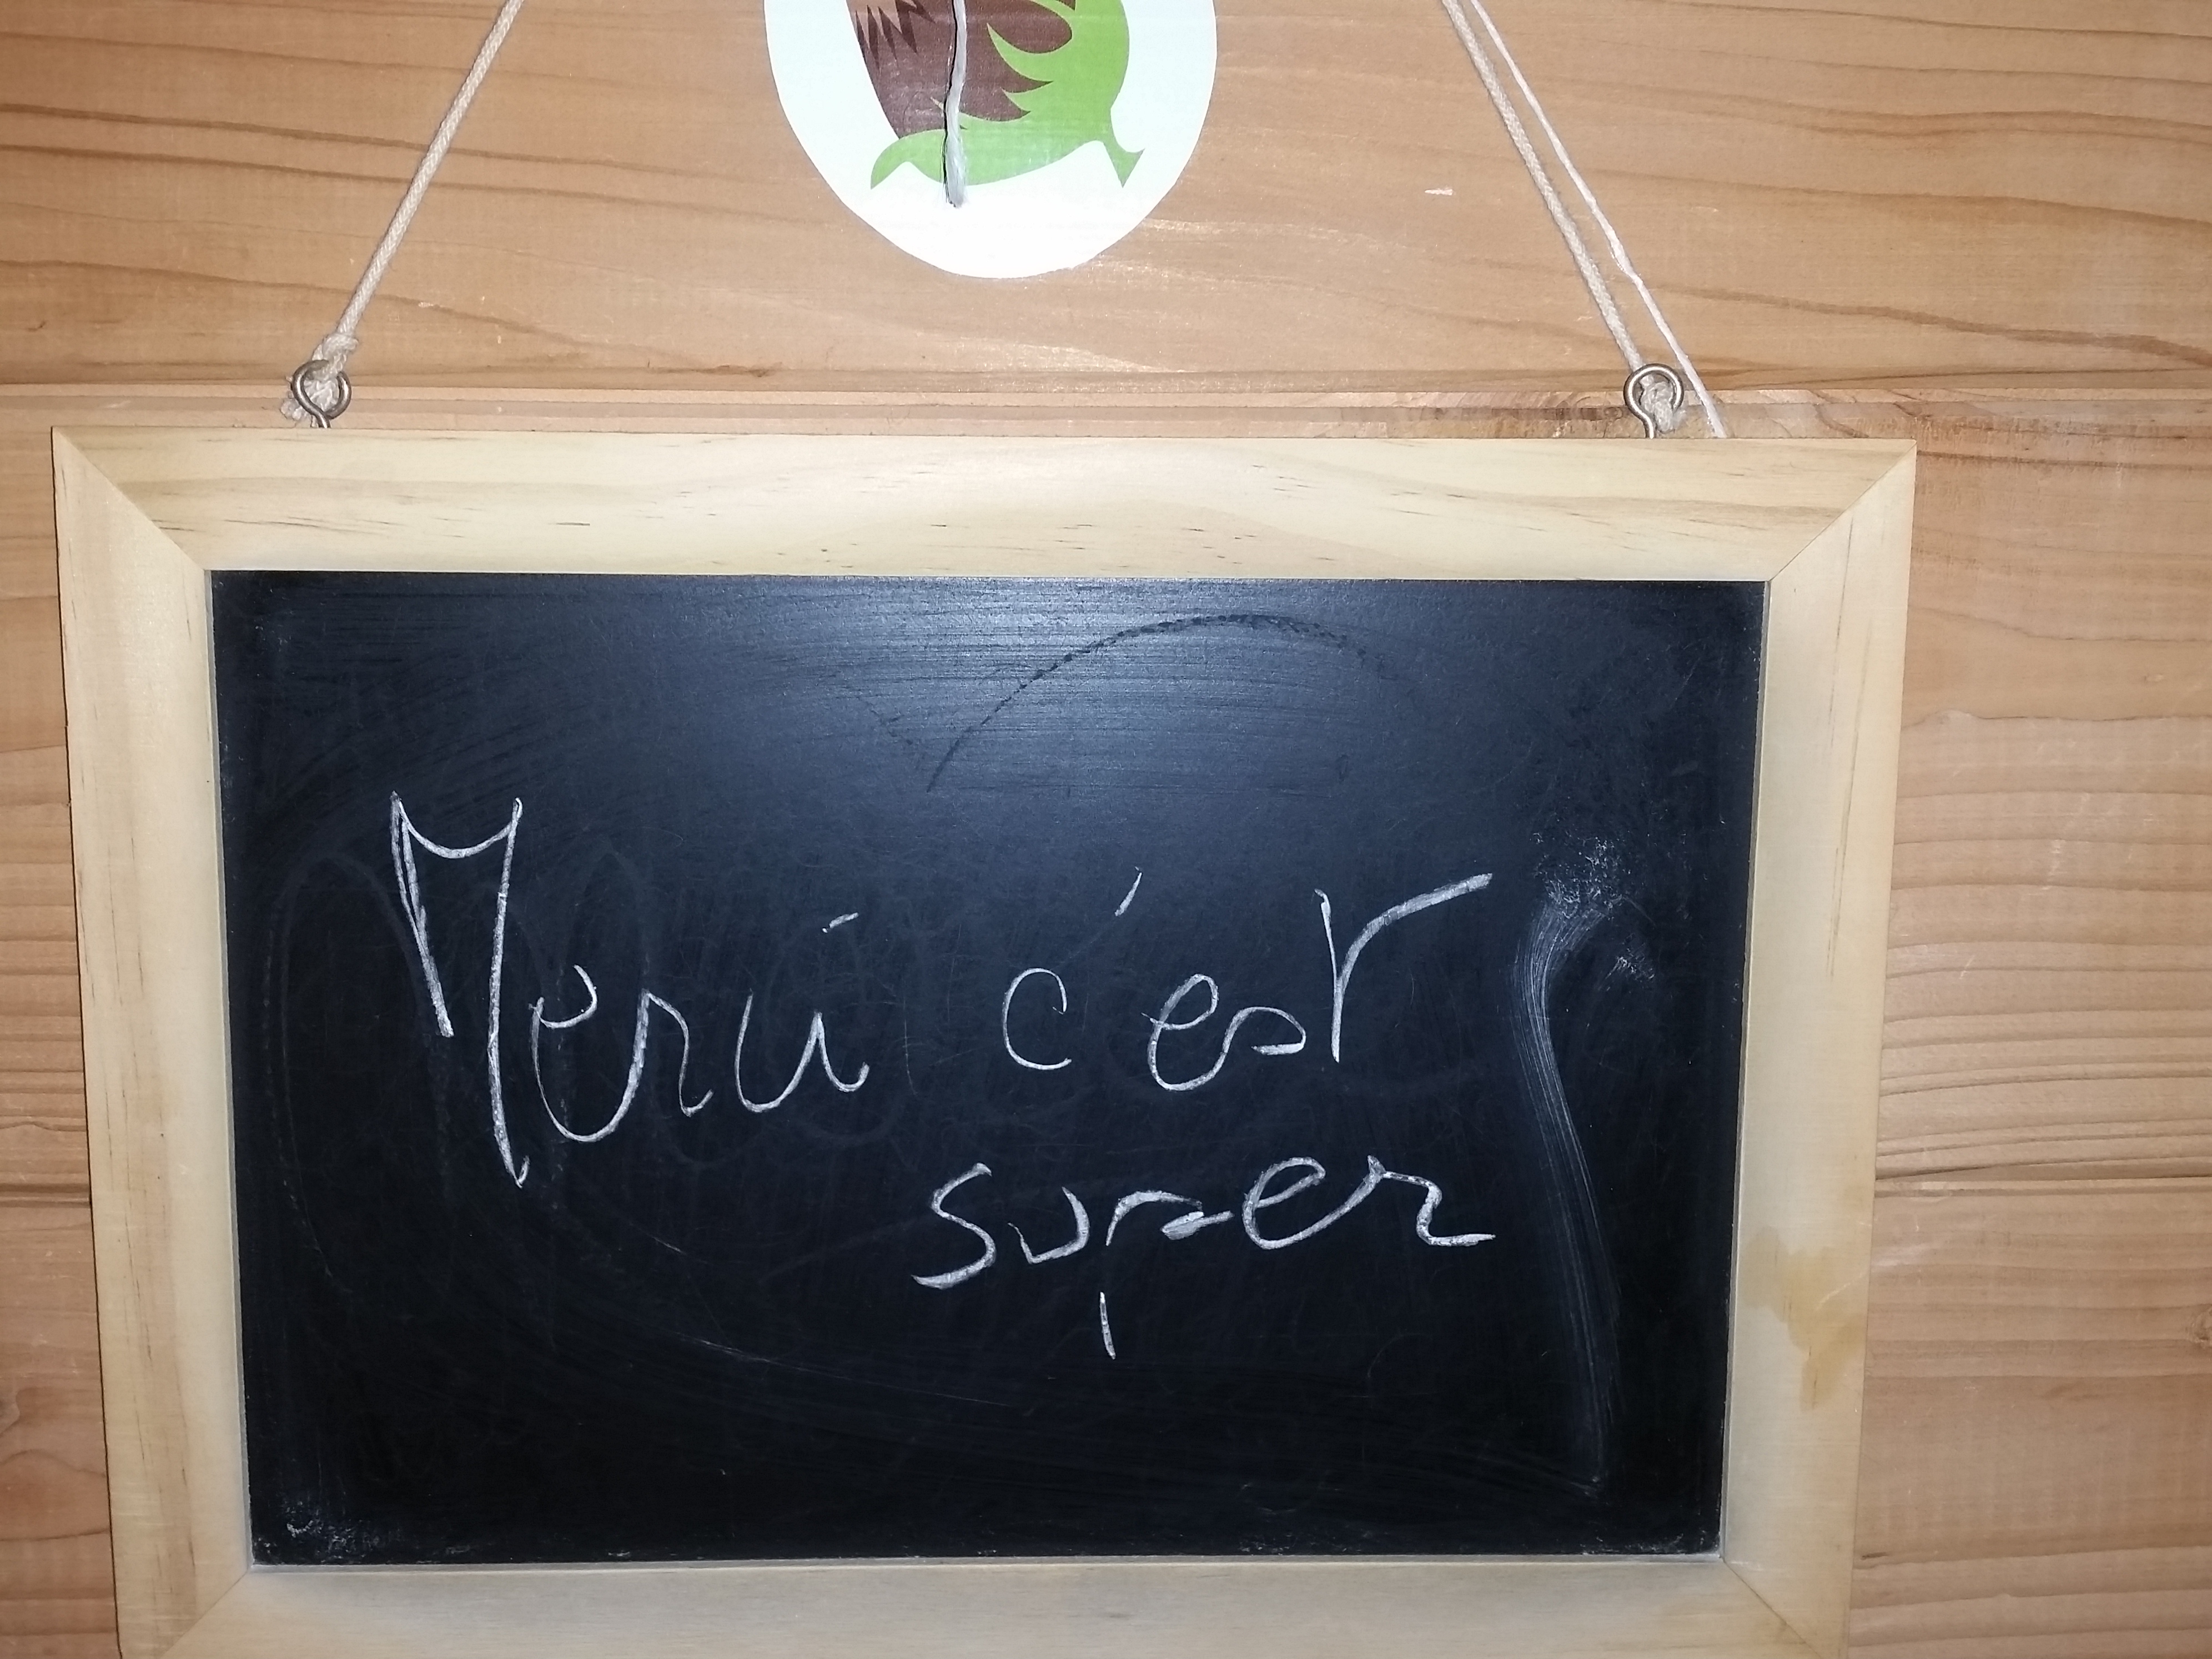 Merci c'est
super